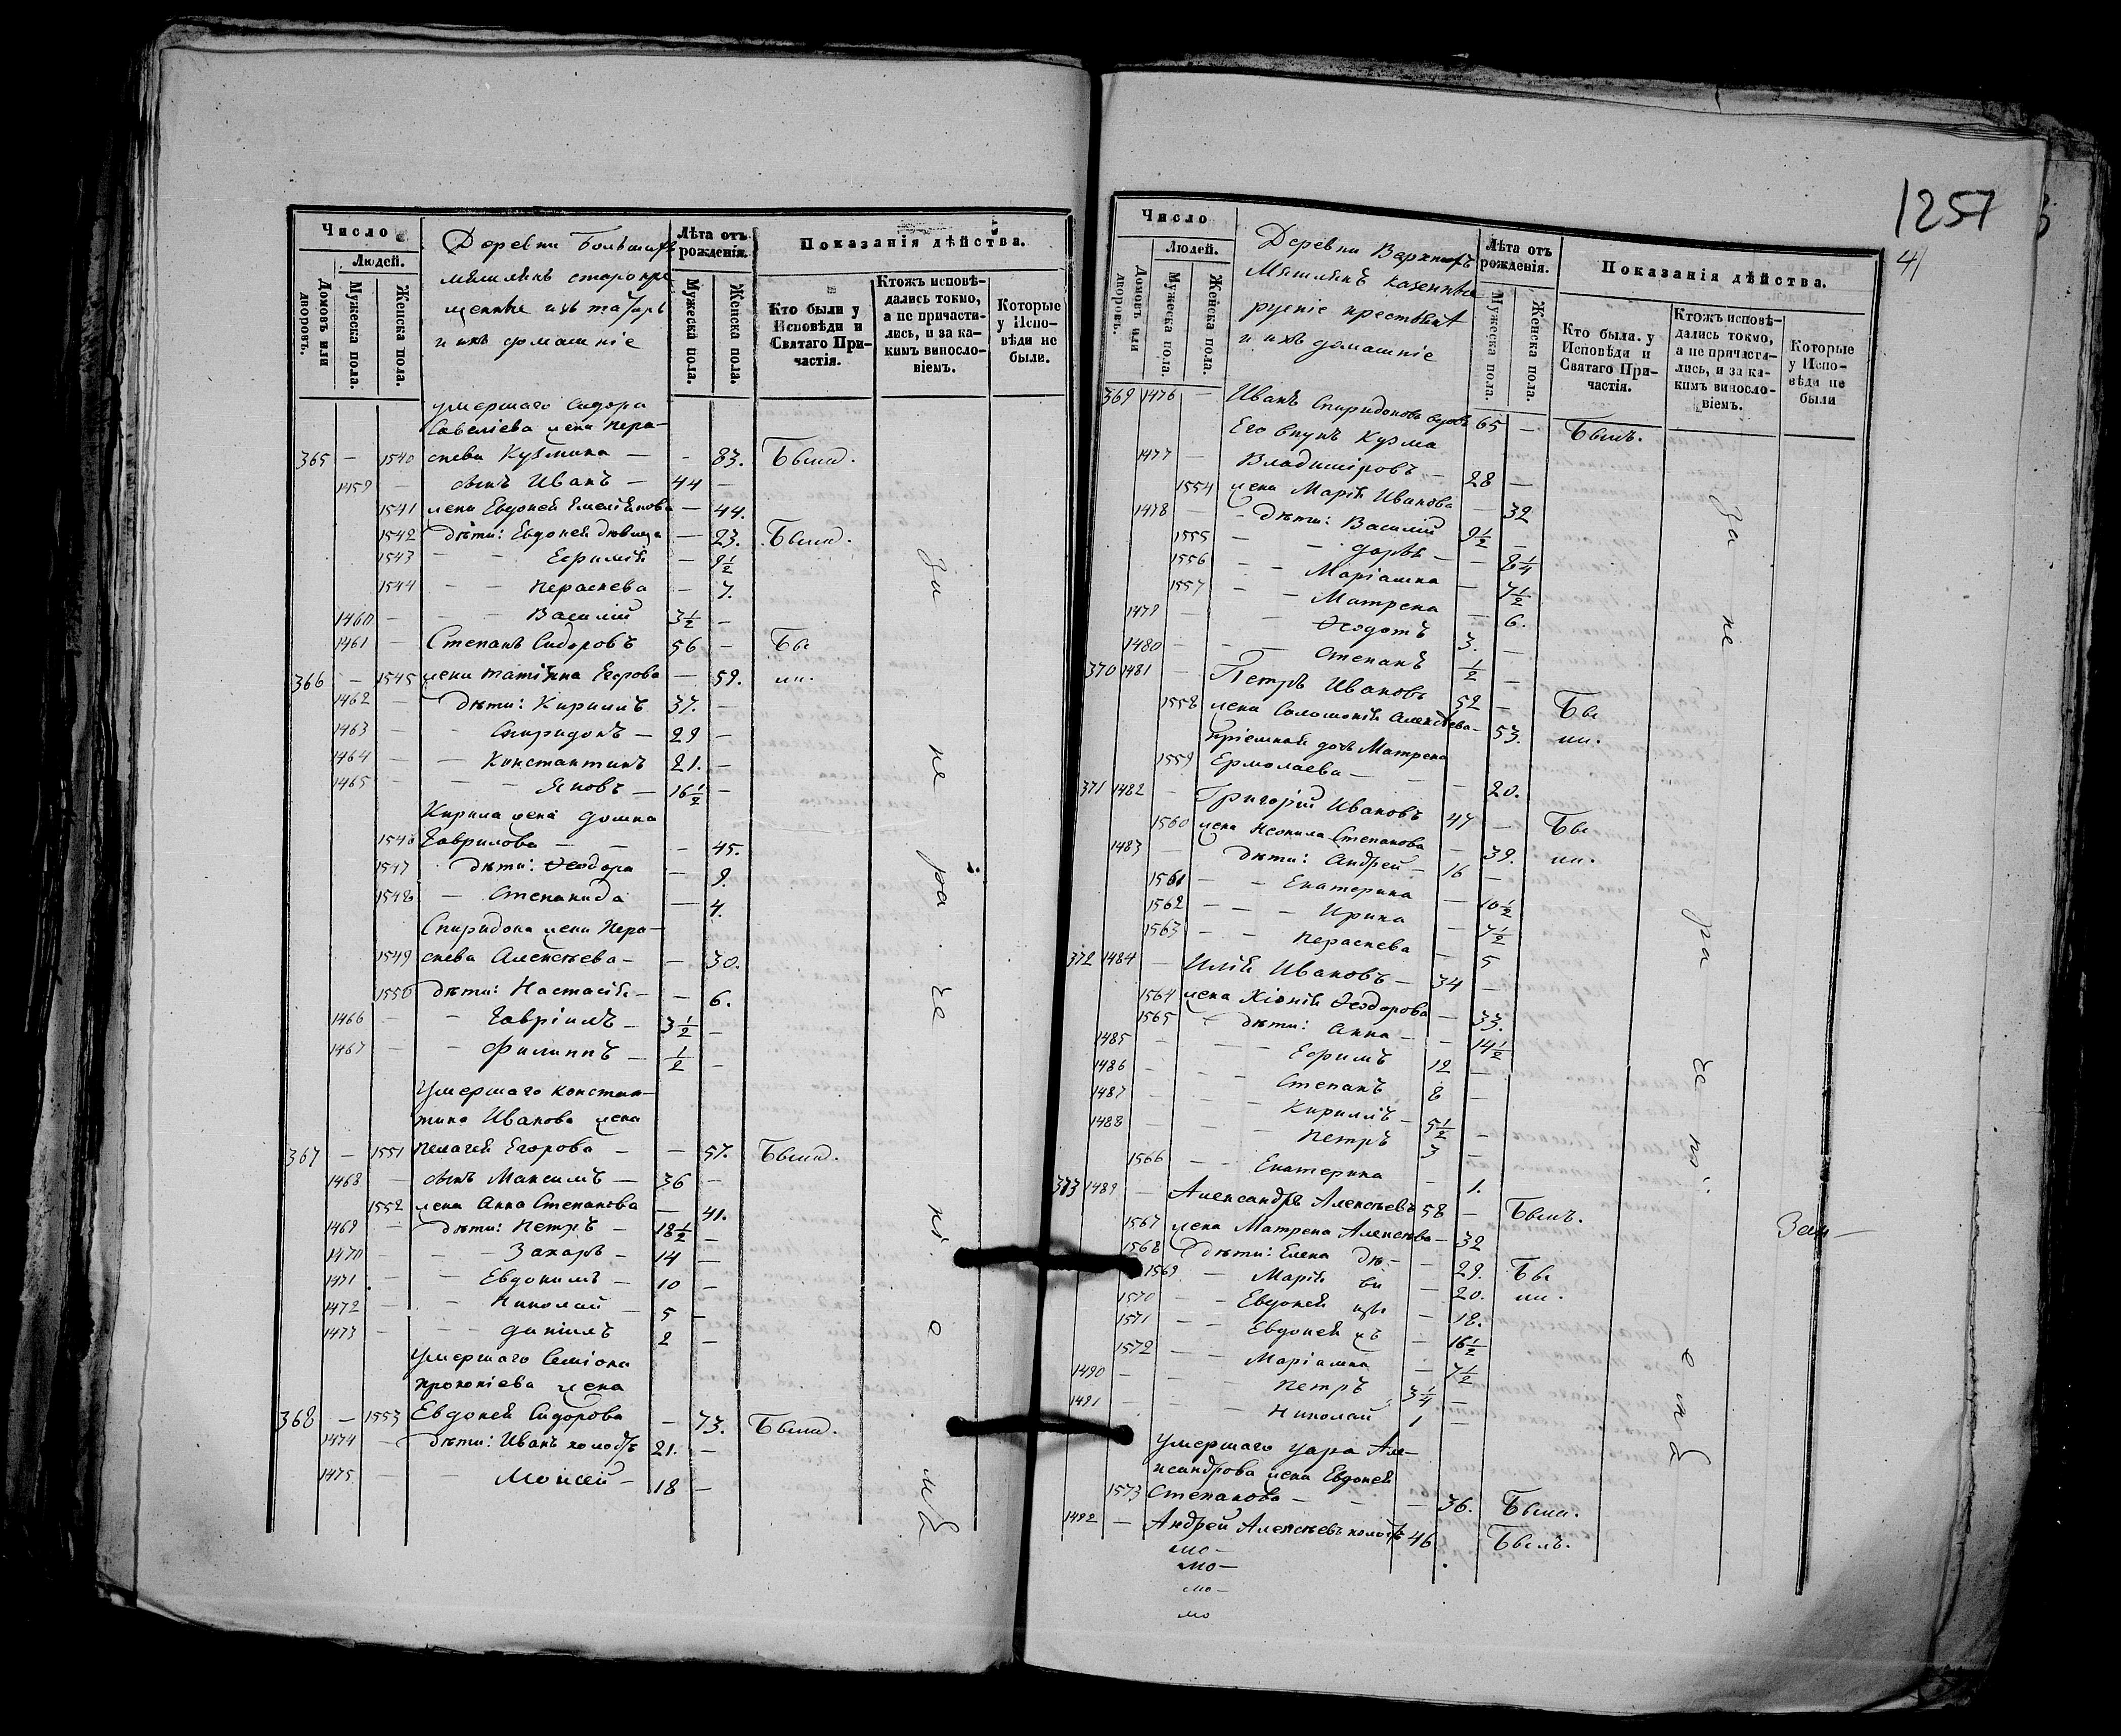 Число
Людей.
Домовъ или дворовъ.
Мужеска пола.
Женска пола.
Деревни Большихъ
мѣшлякъ старокре
щенные изъ татаръ
и ихъ домашніе
Лѣта отъ рожденія.
Мужеска пола.
Женска пола.
Показанія дѣйства.
Кто были у Исповѣди и Святаго Причастія.
Ктожъ исповѣдались токмо, а не причастились, и за какимъ винословіемъ.
Которые у Исповѣди не были.
умершаго Сидора
Савеліева жена Пера-
365 — 1540 скева Кузмина — - 83. Была.
1459 — сынъ Иванъ — 44 —
1541 жена Евдокея Емеліянова — 44.
1542 дѣти: Евдокея дѣвица — 23. Была.
1543 — — Ефимія — 9½
1544 — — Пераскева — 7.
1460 — — Василій 3½ —
1461 — Степанъ Сидоровъ 56 — Бы
366 — 1545 жена Татіяна Егорова — 59. ли.
1462 — дѣти: Кирилъ 37. —
1463 — — Спиридонъ — 29 —
1464 — — Константинъ 21. —
1465 — — Яковъ — 16½ —
Кирила жена Домна
1546 Гаврилова — — - 45.
1547 дѣти: Ѳеодора — 9.
1548 — Степанида — 4.
Спиридона жена Пера-
1549 скева Алексѣева — — 30.
1550 дѣти: Настасія — — 6.
1466 — — Гавріилъ — 3½ —
1467 — — Филиппъ — ½ —
Умершаго Констан-
тина Иванова жена
367 — 1551 Пелагея Егорова — — 57. Была.
1468 — сынъ Максимъ — 36 —
1552 жена Анна Степанова — 41.
1469 — дѣти: Петръ — 18½ —
1470 — — Захаръ — 14 —
1471 — — Евдокимъ — 10 —
1472 — — Николай — 5 —
1473 — — Даніилъ 2 —
Умершаго Семіона
Прокопіева жена
368 — 1553 Евдокея Сидорова — 73. Была.
1474 — дѣти: Иванъ холостъ 21. —
1475 — — Моисей — 18 —
1257
41
Число
Людей.
Домовъ или дворовъ.
Мужеска пола.
Женска пола.
Деревни Верхнихъ
Мѣшлякъ казенные
рускіе крестьяне
и ихъ домашніе
Лѣта отъ рожденія.
Мужеска пола.
Женска пола.
Показанія дѣйства.
Кто были у Исповѣди и Святаго Причастія.
Ктожъ исповѣдались токмо, а не причастились, и за какимъ винословіемъ.
Которые у Исповѣди не были
369 1476 — Иванъ Спиридоновъ вдовъ 65 — Былъ.
Его внукъ Кузма
1477 — Владиміровъ — 28 —
1554 жена Марія Иванова — 32
1478 — дѣти: Василій 9½ —
1555 — — Дарья — — 8¼
1556 — — Маріамна — 7½
1557 — — Матрена — 6.
1479 — — Ѳеодотъ 3. —
1480 — — Степанъ ½ —
370 1481 — Петръ Ивановъ 52 — Бы
1558 жена Соломонія Алексѣева — 53. ли.
Пріемная дочь Матрена
1559 Ермолаева — — 20.
371 1482 — Григорій Ивановъ 47 — Бы
1560 жена Неонила Степанова — 39. ли.
1483 — дѣти: Андрей — 16 —
1561 — — Екатерина — 10½
1562 — — Ирина — 7½
1563 — — Пераскева — 5
372 1484 — Илія Ивановъ — 34 —
1564 жена Хіонія Ѳеодорова — 33.
1565 дѣти: Анна — — 14½
1485 — — Ефимъ 12 —
1486 — — Степанъ 8 —
1487 — — Кирилъ — 5½ —
1488 — — Петръ 3 —
1566 — — Екатерина — 1.
373 1489 — Александръ Алексѣевъ 58 — Былъ.
1567 жена Матрена Алексѣева — 32
1568 дѣти: Елена дѣ- — 29. Бы
1569 — Марія ви — 20. ли.
1570 — — Евдокея цы — 18.
1571 — — Евдокея — 16½
1572 — — Маріамна — 7½
1490 — — Петръ 3¼ —
1491 — — Николай 1 —
Умершаго Уара Але-
ксандрова жена Евдокея
1573 Степанова — — — 36. Была.
1492 — Андрей Алексѣевъ холостъ 46 Былъ.